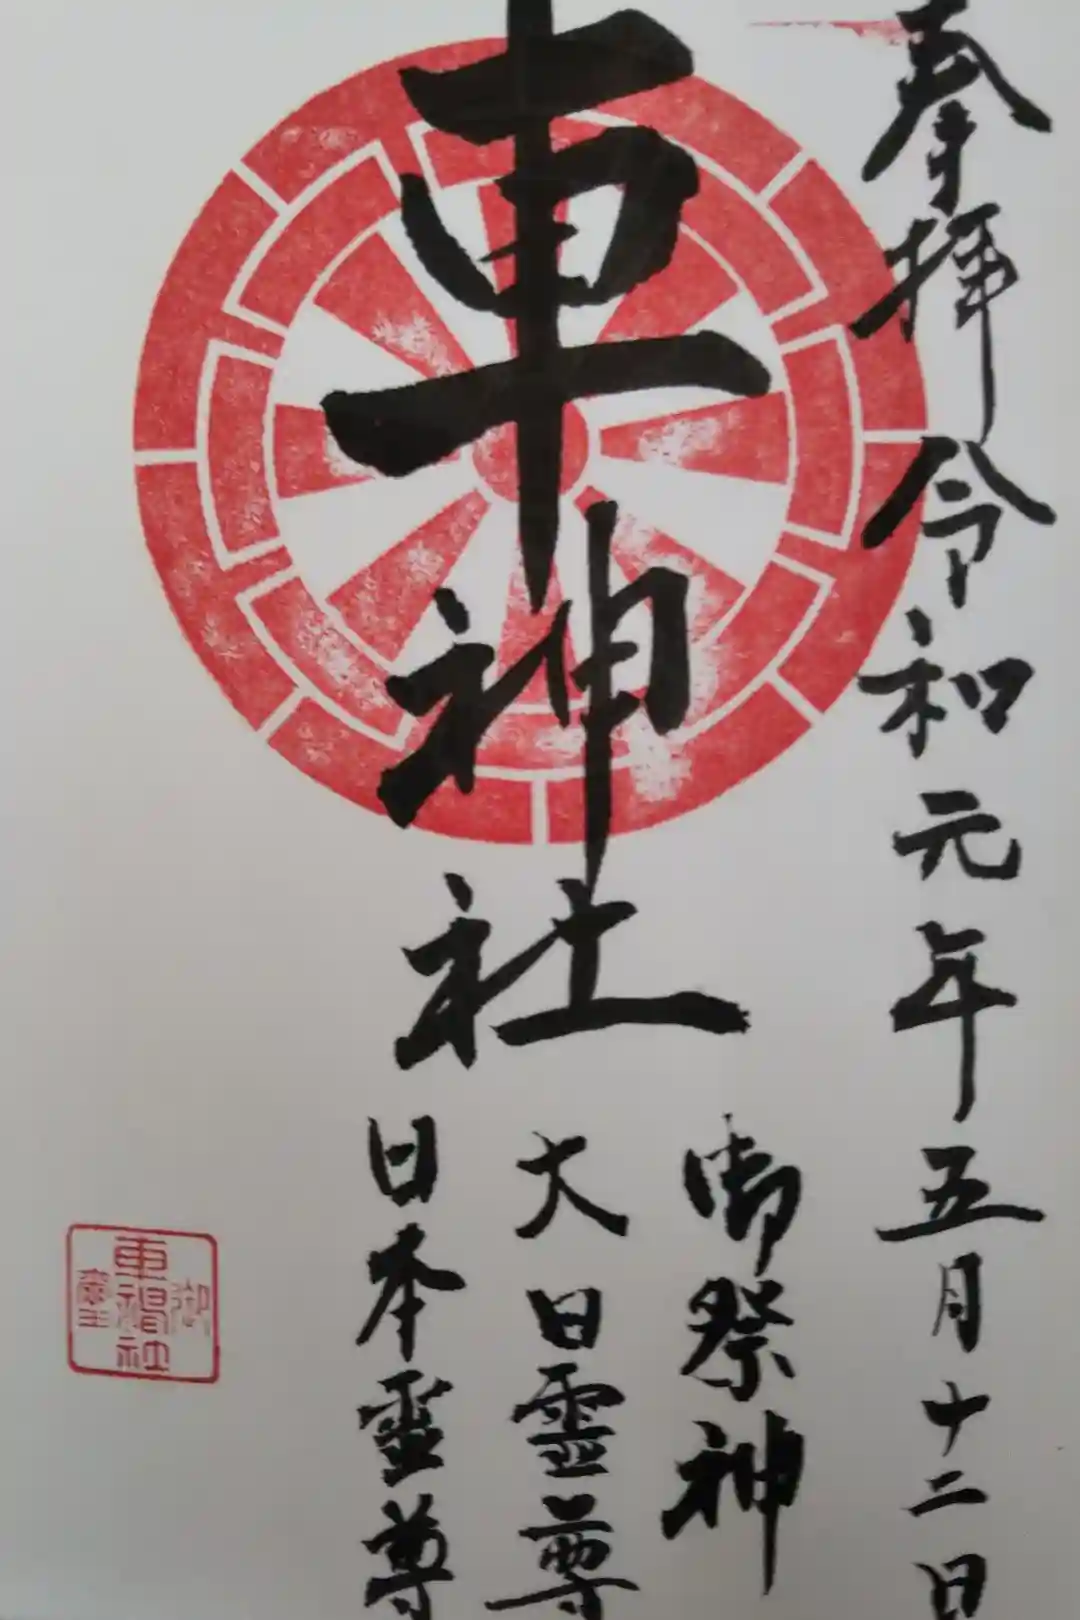 奉拝 令和元年五月十二日
車神社
御祭神
大日霊尊
日本霊尊
御
車神社
璽